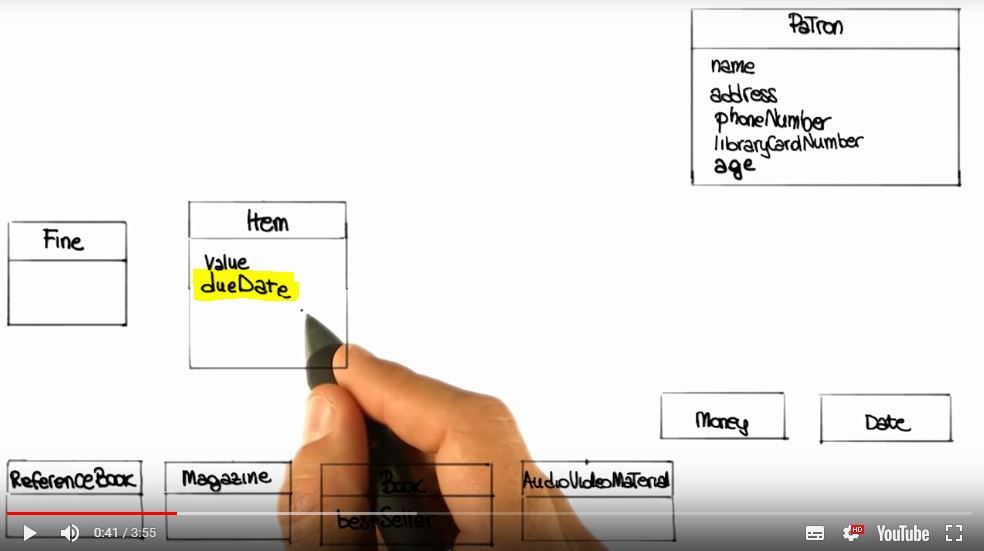 Patron
name
address
phoneNumber
libraryCardNumber
age
Item
Fine
Value
dueDate
Money
Date
ReferenceBook
Magazine
Book
AudioVideoMaterial
best-Seller
0:41 / 3:55
HD
YouTube